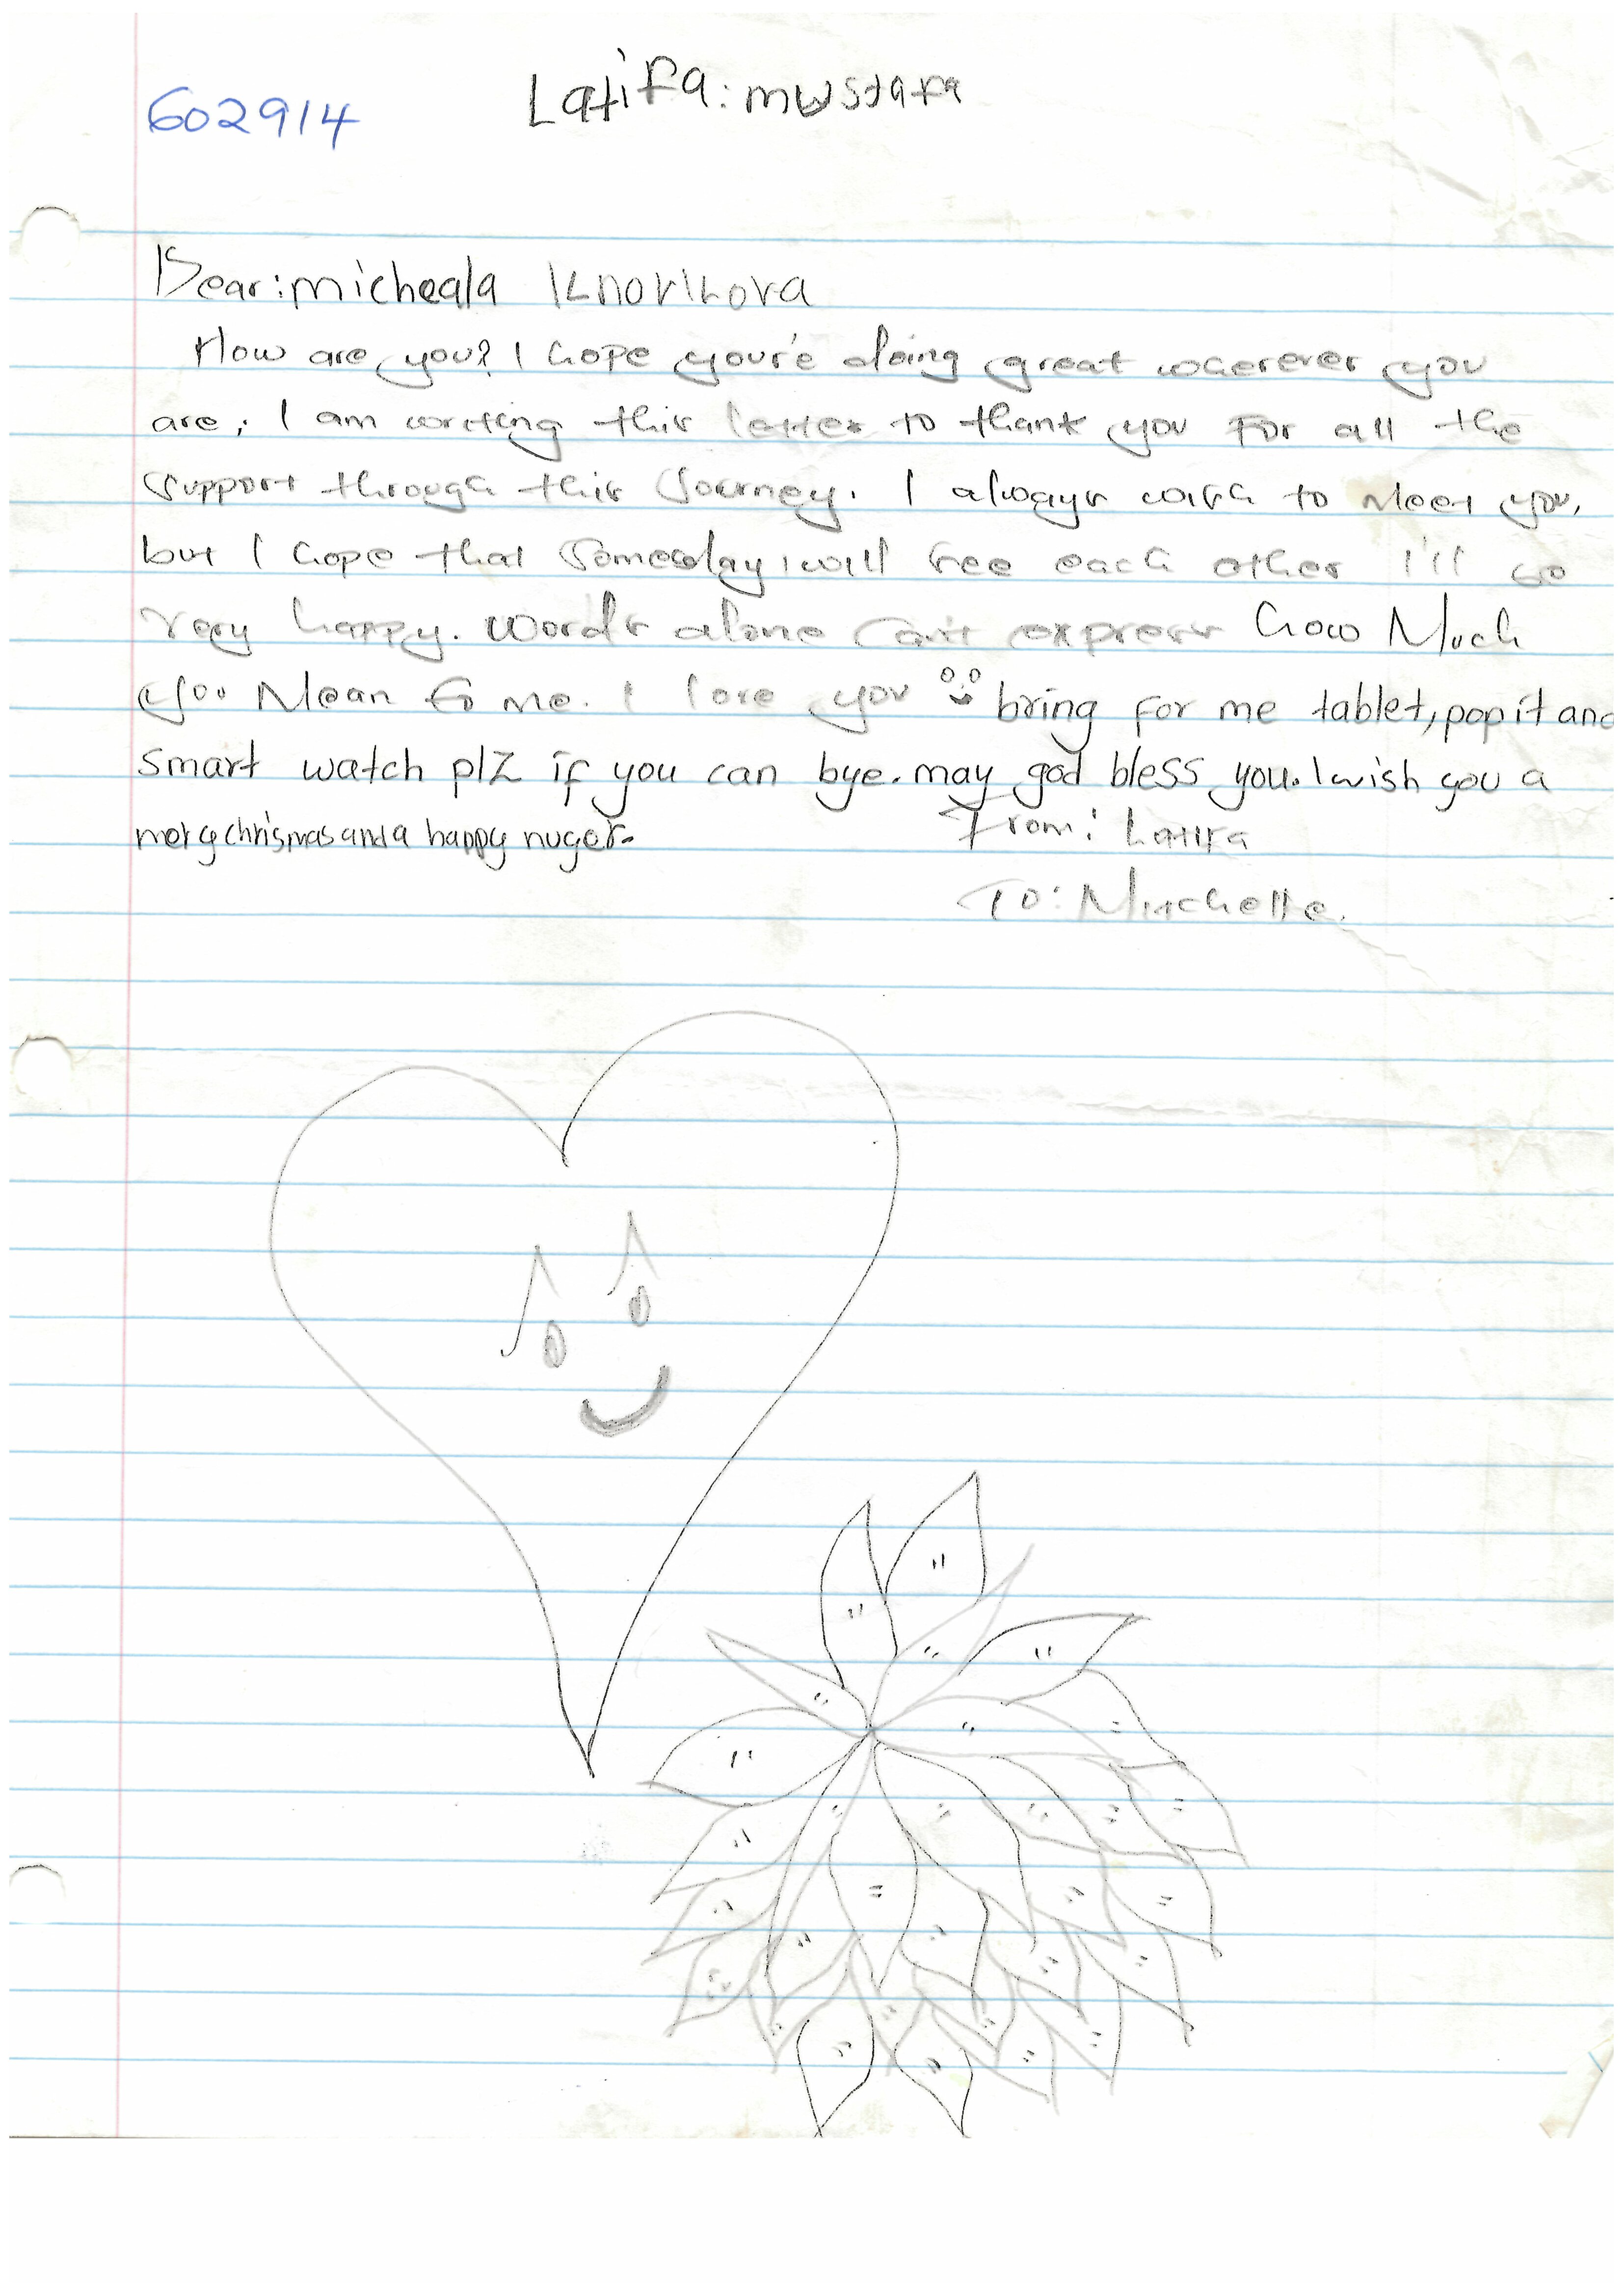 602914
Latifa: mustafa
Dear: micheala Knorikova
How are you? I hope your'e doing great wherever you
are, I am writing this letter to thank you For all the
support through this Journey. I always wish to Meet you,
but I hope that someday I will see each other I'll be
very happy. Words alone can't express how Much
you Mean to me. I love you bring for me tablet, pop it and
smart watch plz if you can bye. may god bless you. I wish you a
mery chrismas and a happy nuyer.
From: Latifa
To: Mirchelle.